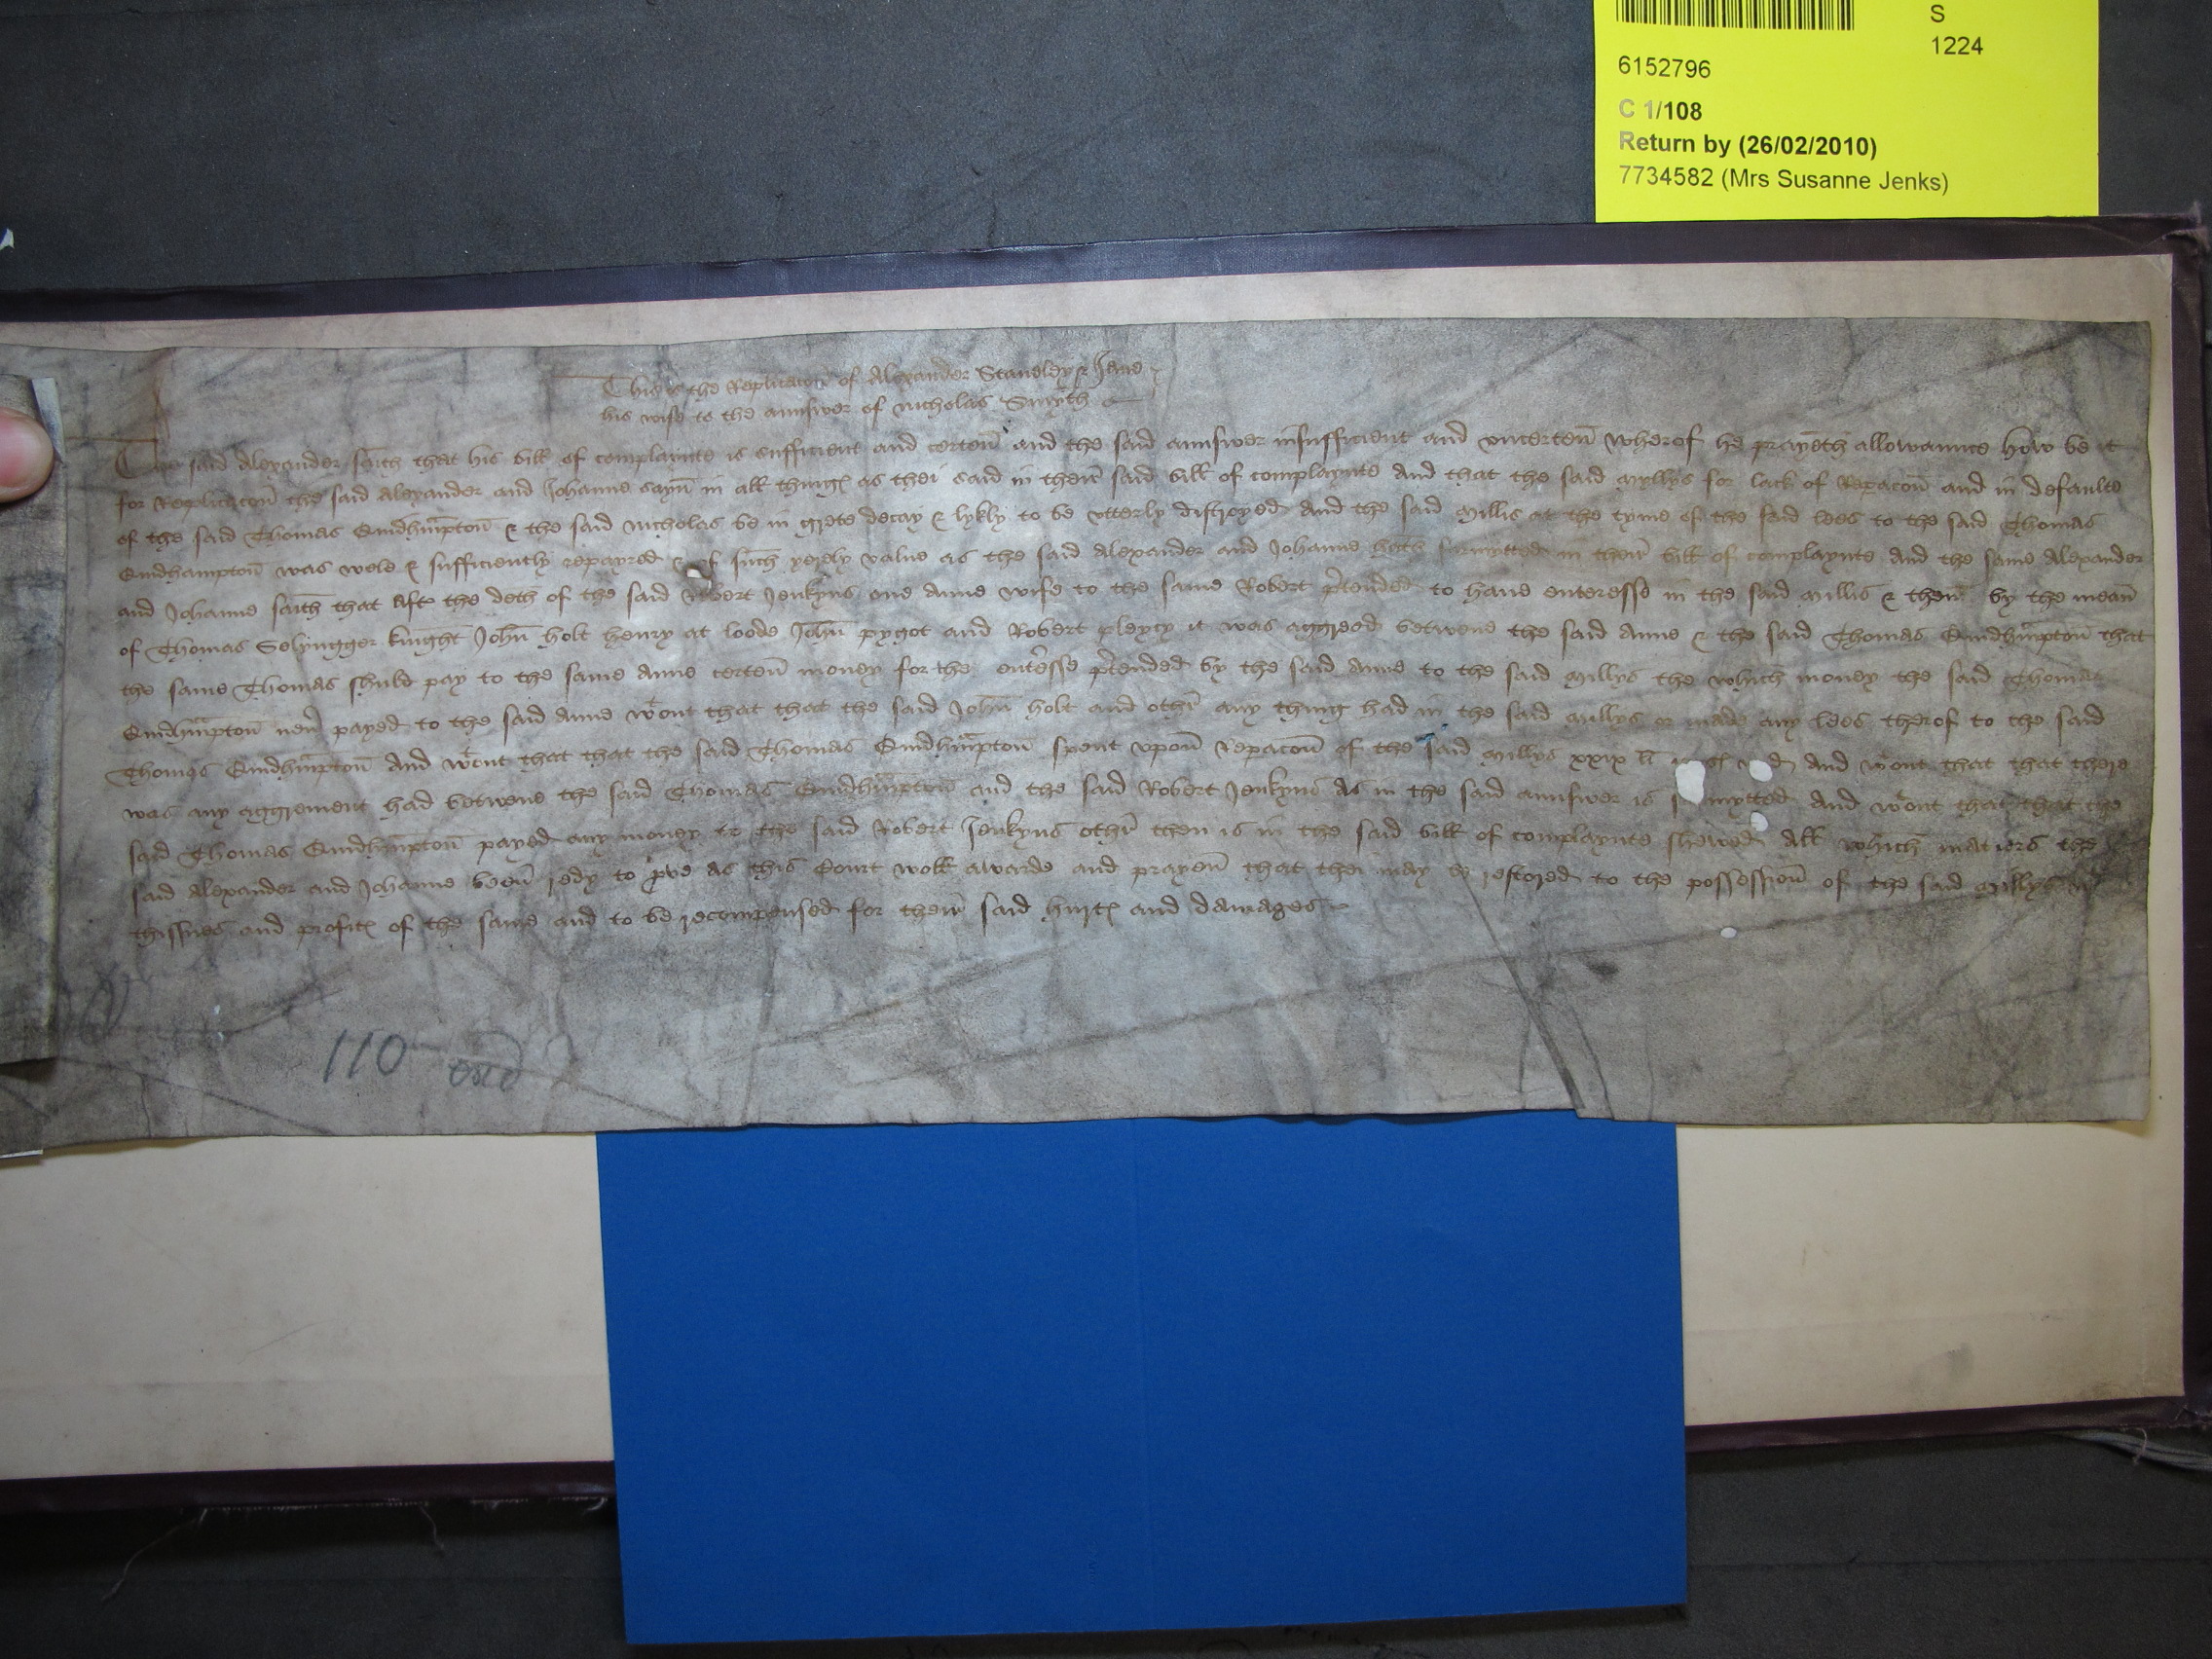 S
1224
6152796
C 1/108
Return by (26/02/2010)
7734582 (Mrs Susanne Jenks)
This is the Replicacon̄ of Alexander Standley & Jane
his wife to the aunswer of Nicholas Smyth
The said Alexander saith that his bill of complaynte is sufficient and certen̄ and the said aunswer insufficient and uncerten̄ wherof he prayeth allowaunce how be it
for Replicacon̄ the said Alexander and Johanne sayn̄ in all thinges as thei said in their̄ said bill of complaynte And that the said Myllys for lack of Repacon̄ and in defaulte
of the said Thomas Quidhmpton̄ & the said Nicholas be in grete decay & lykly to be utterly distroyed And the said Millis at the tyme of the said lees to the said Thomas
Quidhampton̄ was wele & sufficiently repayred & of such yerely value as the said Alexander and Johanne in their̄ bill of complaynte And the same Alexander
and Johanne saith that aft the deth of the said Robert Jenkyns one Anne wife to the same Robert p̄tended to have enteresse in the said Millis & then̄ by the mean̄
of Thomas Selyngger knight John̄ holt henry at loode John̄ pygot and Robert it was aggreed betwene the said Anne & the said Thomas Quidhmpton̄ that
the same Thomas shuld pay to the same Anne certen̄ money for the ent̄esse p̄tended by the said Anne to the said Myllys the which money the said Thomas
Quidhmpton̄ nev̄ payed to the said Anne wtout that that the said John̄ holt and oth̄ any thing had in the said Myllys or made any lees therof to the said
Thomas Quidhmpton̄ And wtout that that the said Thomas Quidhmpton̄ spent upon̄ Repacon̄ of the said Myllys xxix li And wtout that that there
was any aggrement had betwene the said Thomas Quidhmpton̄ and the said Robert Jenkyns As in the said aunswer is And wtout that that the
said Thomas Quidhmpton̄ payed any money to the said Robert Jenkyns oth̄ then is in the said bill of complaynte shewed All which matiers the
said Alexander and Johanne been̄ redy to p̄ve as this Court woll awarde and prayen̄ that thei may be restored to the possession̄ of the said Myllys
thissues and profites of the same and to be recompensed for their̄ said hurtes and damages
110